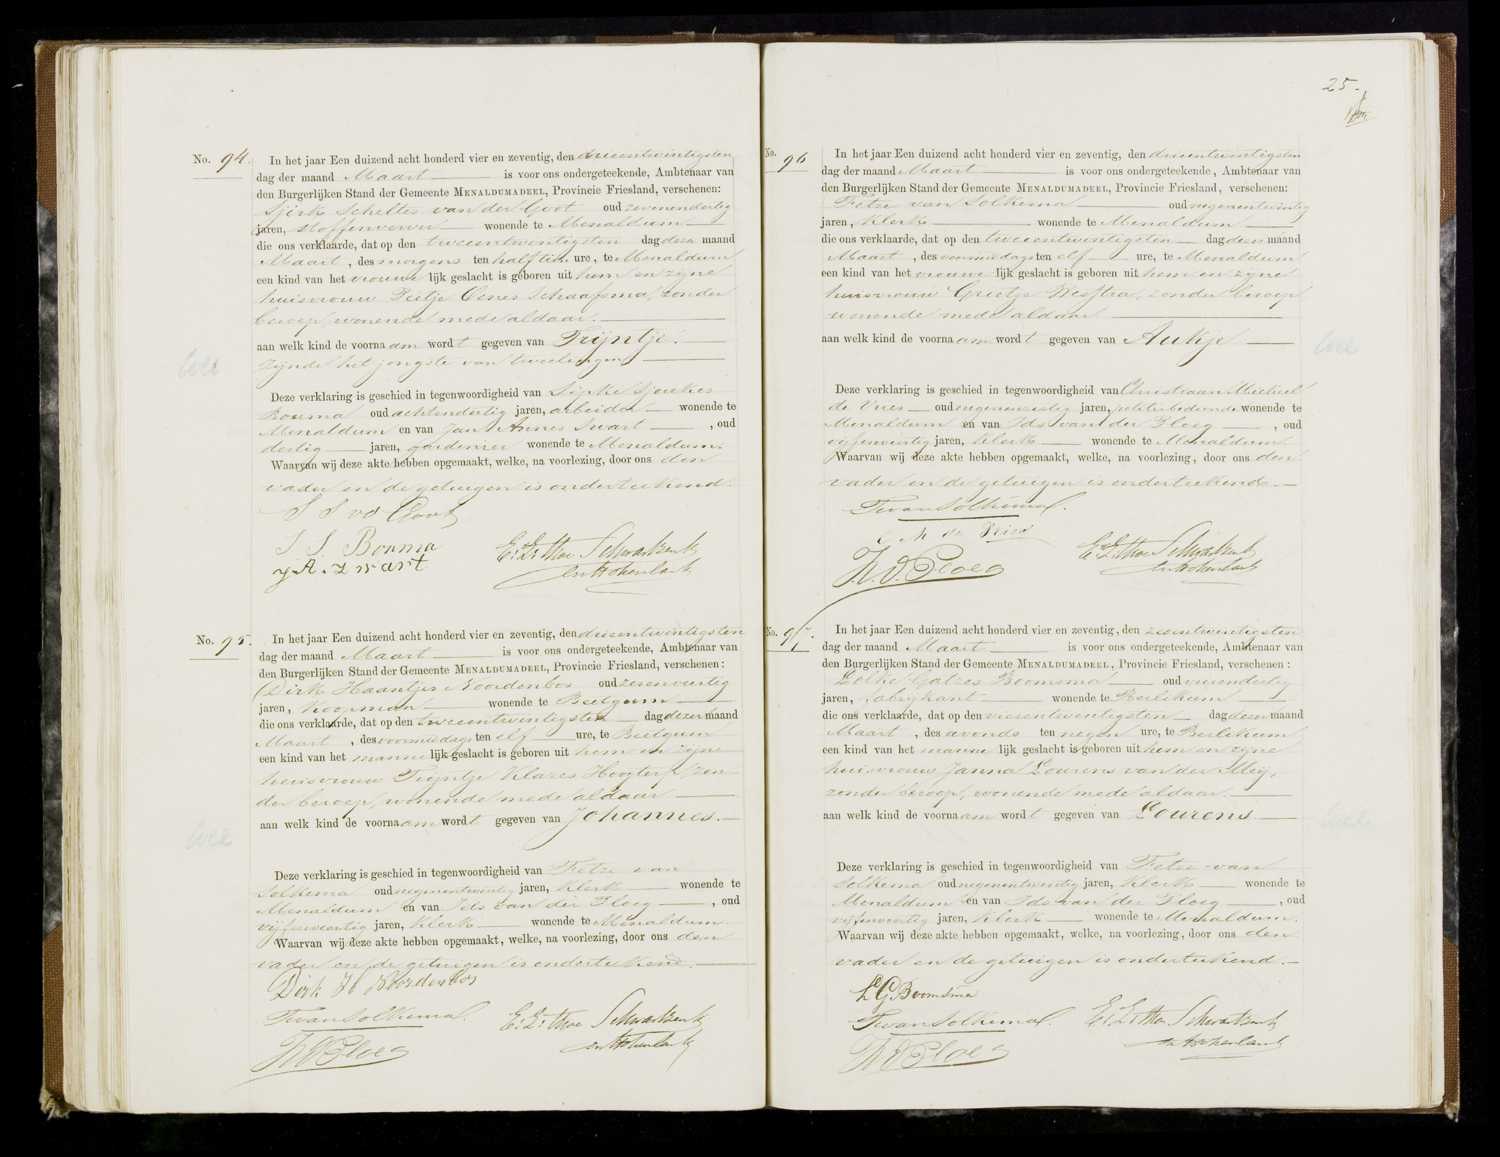 No. 94. In het jaar Een duizend acht honderd vier en zeventig, den drieentwintigsten
dag der maand Maart is voor ons ondergeteekende, Ambtenaar van
den Burgerlijken Stand der Gemeente MENALDUMADEEL, Provincie Friesland, verschenen:
Sjirk Scheltes van der Goot oud zevenendertig
jaren, stoffenverver wonende te Menaldum
die ons verklaarde, dat op den tweeentwintigsten dag dezer maand
Maart, des morgens ten half tien ure, te Menaldum
een kind van het vrouwelijk geslacht is geboren uit hem en zijne
huisvrouw Pietje Oenes Schaafsma, zonder
beroep, wonende mede aldaar.
aan welk kind de voornaam wordt gegeven van Trijntje.
zijnde het jongste van tweelingen
Deze verklaring is geschied in tegenwoordigheid van Sipke Sjoukes
Bouma oud achtendertig jaren, arbeider wonende te
Menaldum en van Jan Annes Swart, oud
dertig jaren, gardenier wonende te Menaldum.
Waarvan wij deze akte hebben opgemaakt, welke, na voorlezing, door ons den
vader en de getuigen is onderteekend.
S S vd Goot
S. S. Bouma
J. A. zwart
E: L: thoe Schwartzenberg
en Hohenlansberg
No. 95. In het jaar Een duizend acht honderd vier en zeventig, den drieentwintigsten
dag der maand Maart is voor ons ondergeteekende, Ambtenaar van
den Burgerlijken Stand der Gemeente MENALDUMADEEL, Provincie Friesland, verschenen:
Dirk Haantjes Noordenbos oud zevenveertig
jaren, Koopman wonende te Beetgum
die ons verklaarde, dat op den tweeentwintigsten dag dezer maand
Maart, des voormiddags ten elf ure, te Beetgum
een kind van het mannelijk geslacht is geboren uit hem en zijne
huisvrouw Trijntje Klazes Hoogterp, zon-
der beroep, wonende mede aldaar
aan welk kind de voornaam wordt gegeven van Johannes.
Deze verklaring is geschied in tegenwoordigheid van Fetze van
Solkema oud negenentwintig jaren, klerk wonende te
Menaldum en van Ids van der Ploeg, oud
vijfenveertig jaren, klerk wonende te Menaldum.
Waarvan wij deze akte hebben opgemaakt, welke, na voorlezing, door ons den
vader en de getuigen is onderteekend.
Dirk H Noordenbos
F van Solkema.
E: L: thoe Schwartzenberg
en Hohenlansberg
25.
No. 96 In het jaar Een duizend acht honderd vier en zeventig, den drieentwintigsten
dag der maand Maart is voor ons ondergeteekende, Ambtenaar van
den Burgerlijken Stand der Gemeente MENALDUMADEEL, Provincie Friesland, verschenen:
Fetze van Solkema oud negenentwintig
jaren, klerk wonende te Menaldum
die ons verklaarde, dat op den tweeentwintigsten dag dezer maand
Maart, des voormiddags ten elf ure, te Menaldum
een kind van het vrouwelijk geslacht is geboren uit hem en zijne
huisvrouw Grietje Westra, zonder beroep
wonende mede aldaar
aan welk kind de voornaam wordt gegeven van Aukje
Deze verklaring is geschied in tegenwoordigheid van Christiaan Michiel
de Vries oud jaren, wonende te
Menaldum en van Ids van der Ploeg, oud
vijfenveertig jaren, klerk wonende te Menaldum.
Waarvan wij deze akte hebben opgemaakt, welke, na voorlezing, door ons den
vader en de getuigen is onderteekend.
F van Solkema.
C M de Vries
E: L: thoe Schwartzenberg
en Hohenlansberg
No. 97. In het jaar Een duizend acht honderd vier en zeventig, den zesentwintigsten
dag der maand Maart is voor ons ondergeteekende, Ambtenaar van
den Burgerlijken Stand der Gemeente MENALDUMADEEL, Provincie Friesland, verschenen:
Lolke Gatzes Boomsma oud vierendertig
jaren, fabrykant wonende te Berlikum
die ons verklaarde, dat op den vierentwintigsten dag dezer maand
Maart, des avonds ten negen ure, te Berlikum
een kind van het mannelijk geslacht is geboren uit hem en zijne
huisvrouw Janna Lourens van der Meij,
zonder beroep, wonende mede aldaar.
aan welk kind de voornaam wordt gegeven van Lourens
Deze verklaring is geschied in tegenwoordigheid van Fetze van
Solkema oud negenentwintig jaren, klerk wonende te
Menaldum en van Ids van der Ploeg, oud
vijfenveertig jaren, klerk wonende te Menaldum.
Waarvan wij deze akte hebben opgemaakt, welke, na voorlezing, door ons den
vader en de getuigen is onderteekend.
L G Boomsma
F van Solkema.
E: L: thoe Schwartzenberg
en Hohenlansberg